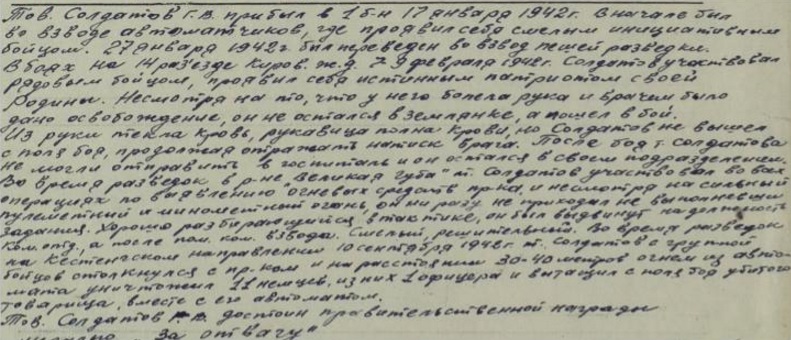 Тов. Солдатов Г.В. прибыл в 1 б-н 17 января 1942г. Вначале был
во взводе автоматчиков, где проявил себя смелым инициативным
бойцом. 27 января 1942г. был переведен во взвод пешей разведки.
В боях на 14 разъезде Киров. ж.д. 7-9 февраля 1942г. Солдатов участвовал
рядовым бойцом, проявил себя истинным патриотом своей
Родины. Несмотря на то, что у него болела рука и врачем было
дано освобождение, он не остался в землянке, а пошел в бой.
Из руки текла кровь, рукавица полна крови, но Солдатов не вышел
с поля боя, продолжая отражать натиск врага. После боя т. Солдатова
не могли отправить в госпиталь и он остался в своем подразделении.
Во время разведок в р-не "Великая губа" т. Солдатов участвовал во всех
операциях по выявлению огневых средств пр-ка, и несмотря на сильный
пулеметный и минометный огонь, он ни разу не приходил не выполневши
задания. Хорошо разбирающийся в тактике, он был выдвинут на должность
ком. отд., а после пом. ком. взвода. Смелый, решительный. Во время разведок
на Кестенгском направлении 10 сентября 1942г. т. Солдатов с группой
бойцов столкнулся с пр-ком и на расстоянии 30-40 метров огнем из авто-
мата уничтожил 11 немцев, из них 1 офицера и вытащил с поля боя убитого
товарища, вместе с его автоматом.
Тов. Солдатов Г.В. достоин правительственной награды
"За отвагу"